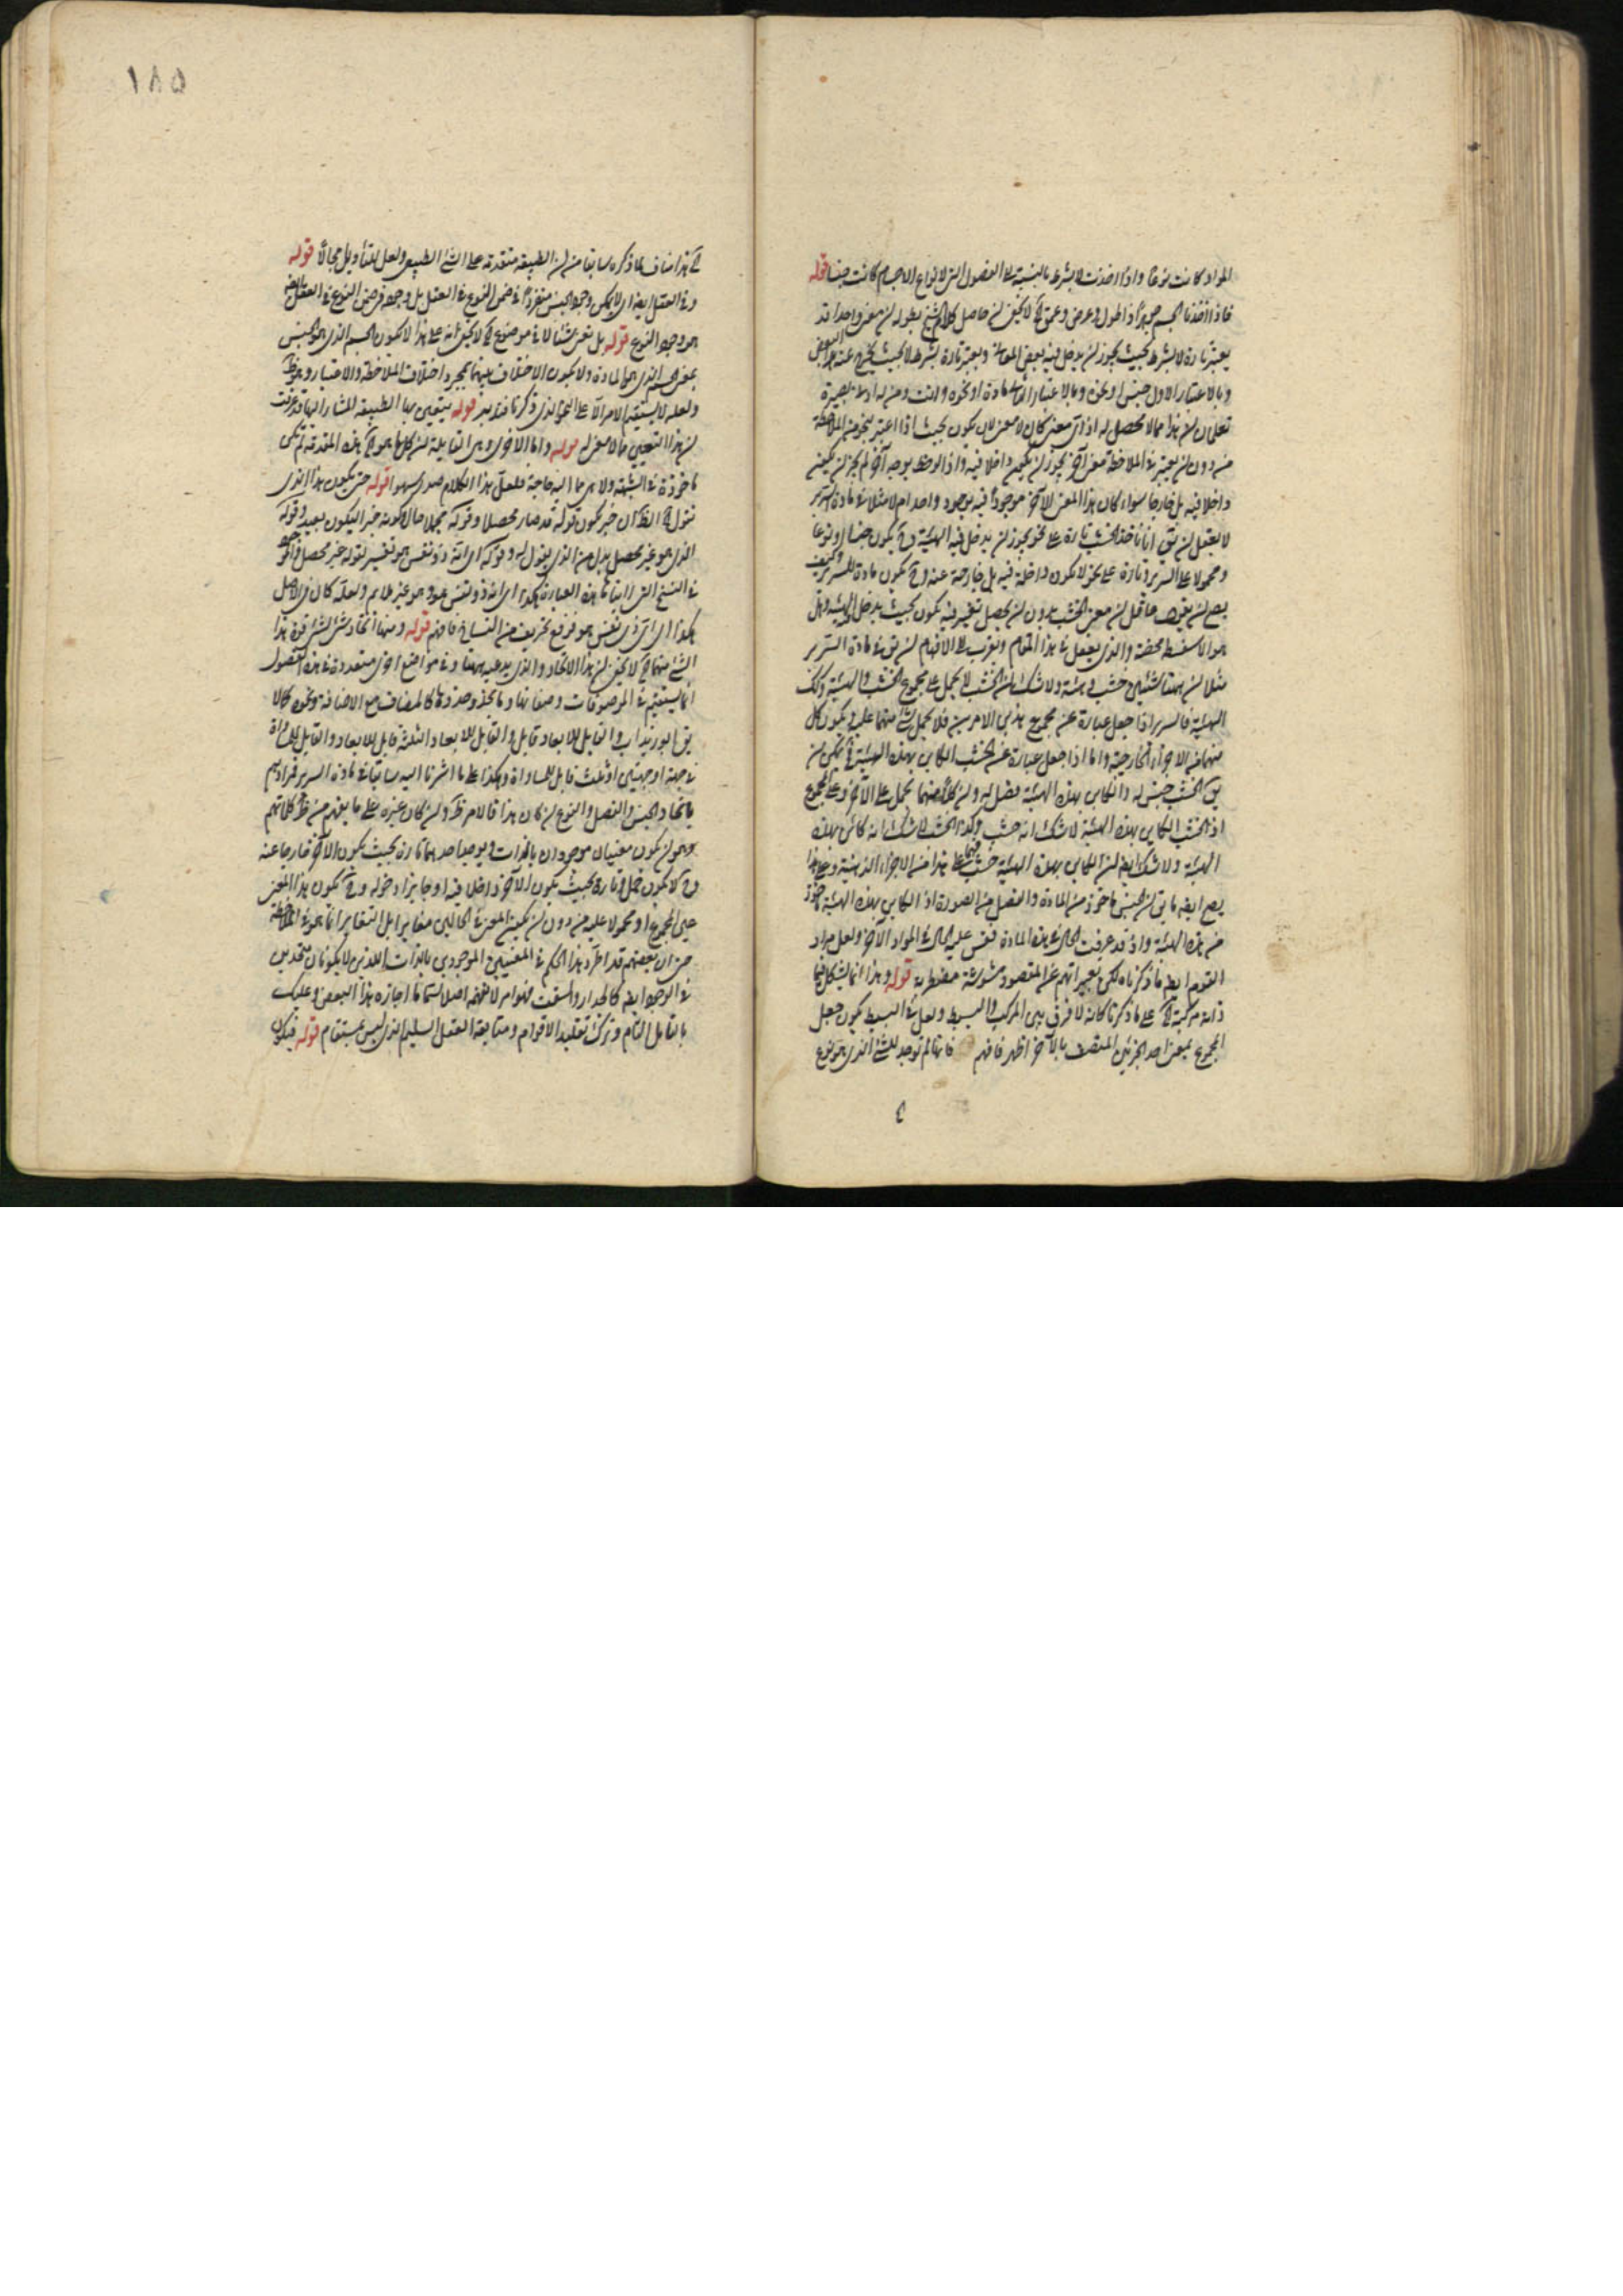 المواد كانت نوعا واذا اخذت لا بشرط بالنسبة الى الفصول التى لانواع الاجسام كانت جنسا قوله
فاذا اخذنا الجسم جوهرا ذا طول وعرض وعمق آه لا يخفى ان حاصل كلام الشيخ بطوله ان معنى واحدا قد
يعتبر تارة لا بشرط بحيث يجوز ان يدخل فيه بعض المعانى ويعتبر تارة بشرط لا بحيث يخرج عنه هذا البعض
وبالاعتبار الاول جنس او نحوه وبالاعتبار الثانى مادة او نحوه وانت ومن له ادنى بصيرة
تعلمان ان هذا مما لا محصل له اذ اى معنى كان لا معنى لان يكون بحيث اذا اعتبر بنحو من الملاحظة
من دون ان يعتبر فى الملاحظة معنى آخر يجوز ان يكون داخلا فيه واذا لوحظ بوجه آخر لم يجز ان يكون
داخلا فيه بل خارجا سواء كان هذا المعنى الآخر موجودا فيه بوجود واحد ام لا مثلا فى مادة السرير
لا يعقل ان يق انا ناخذ الخشب تارة على نحو يجوز ان يدخل فيه الهيئة وح يكون جنسا او نوعا
ومحمولا على السرير وتارة على نحو لا يكون داخلة فيه بل خارجة عنه وح يكون مادة للسرير وكيف
يصح ان يقول عاقل ان معنى الخشب بدون ان يحصل تغير فيه يكون بحيث يدخل الهيئة وهل
هو الا سفسطة محضة والذى يعقل فى هذا المقام ويقرب الى الافهام ان يق فى مادة السرير
مثلا ان ههنا شيئين خشب وهيئة ولا شك ان الخشب لا يحمل على مجموع الخشب والهيئة وكذلك
الهيئة فالسرير اذا جعل عبارة عن مجموع هذين الامرين فلا يحمل شئ منهما عليه ويكون كل
منهما من الاجزاء الخارجية واما اذا جعل عبارة عن الخشب الكاين بهذه الهيئة فح يمكن ان
يق الخشب جنس له والكاين بهذه الهيئة فصل له وان كلا منهما يحمل على الآخر وعلى المجموع
اذ الخشب الكاين بهذه الهيئة لا شك انه خشب وكذا الخشب لا شك انه كائن بهذه
الهيئة ولا شك ايضا ان الكاين بهذه الهيئة خشب فهما على هذا من الاجزاء الذهنية وعلى هذا
يصح ايضا ما يق ان الجنس ماخوذ من المادة والفصل من الصورة اذ الكاين بهذه الهيئة ماخوذ
من هذه الهيئة واذ قد عرفت الحال فى هذه المادة فقس عليه الحال فى المواد الآخر ولعل مراد
القوم ايضا ما ذكرناه لكن تعبيراتهم عن المقصود مشوشة مضطربة قوله وهذا انما يشكل فيما
ذاته مركبة آه على ما ذكرنا كانه لا فرق بين المركب والبسيط ولعل فى البسيط يكون جعل
المجموع بمعنى احد الجزئين المتصف بالآخر اظهر فافهم فانها لم توجد للشئ الذى هو نوع
١٨٥
آه هذا مناف لما ذكره سابقا من ان الطبيعة متقدمة على الشئ الطبيعى ولعل للتأويل مجالا قوله
وفى العقل ايضا لا يمكن وجود الجنس منفردا فى ضمن النوع فى العقل بل وجوده فرضى النوع فى العقل بعينه
هو وجود النوع قوله بل نعنى شيئا لا فى موضوع آه لا يخفى انه على هذا لا يكون الجسم الذى هو الجنس
بمعنى الجسم الذى هو المادة ولا يكون الاختلاف بينهما بمجرد اختلاف الملاحظة والاعتبار وهو ظ
ولعله لا يستقيم الامر الا على النحو الذى ذكرنا فتدبر قوله يتعين بها الطبيعة المشار اليها قد عرفت
ان هذا التعيين مما لا معنى له قوله واما الاخرى وهى القابلة ان كلها هو آه هذه المقدمة لم تكن
ماخوذة فى الشبهة ولا هى مما اليه حاجة فلعل هذا الكلام صدر سهوا قوله حتى يكون هذا الذى
نقول آه الظ ان خبر يكون قوله قد صار محصلا وقوله مجملا حال او كونه خبر اليكون بعيد وقوله
الذى هو غير محصل بدل من الذى يقول له وقوله اى انه ذو نفس هو تفسير لقوله غير محصل والموجود
فى النسخ التى راينا هذه العبارة هكذا اى انه ذو نفس هو وهو غير ملايم ولعله كان فى الاصل
هكذا اى اى ذى نفس هو فوقع تحريف من النساخ فافهم قوله ومنها اتحاد شئ بشئ قوة هذا
الشئ منهما آه لا يخفى ان هذا الاتحاد والذى يدعيه ههنا وفى مواضع اخرى متعددة فى هذه الفصول
انما يستقيم فى الموصوفات وصفاتها وما يحذو حذوها كالمضاف مع الاضافة ونحوه كما لا
يق ابو زيد اب والقابل للابعاد قابل والقابل للابعاد الثلثة قابل للابعاد والقابل للمساواة
فى جهة او جهتين او ثلث قابل للمساواة وهكذا على ما اشرنا اليه سابقا فى مادة السرير فمرادهم
باتحاد الجنس والفصل والنوع ان كان هذا فالامر ظ وان كان غيره على ما يفهم من ظ كلماتهم
وهو ان يكون معنيان موجودان بالذات ويوجد احدهما تارة بحيث يكون الآخر خارجا عنه
وح لا يكون حمل وتارة بحيث يكون الآخر داخلا فيه او جايزا دخوله وح يكون هذا المعنى
عين المجموع او محمولا عليه من دون ان يكون المعنى فى الحالين متغايرا بل التغاير انما هو فى الملاحظة
حتى ان بعضهم قد اطرد هذا الحكم فى المعنيين الموجودين بالذات اللذين لا يكونان متحدين
فى الوجود ايضا كالجدار والسقف فهو امر لا نفهمه اصلا سيما ما اجازه هذا البعض وعليك
بالتامل التام وترك تقليد الاقوام ومتابعة العقل السليم الذى ليس بسقام قوله فيكون